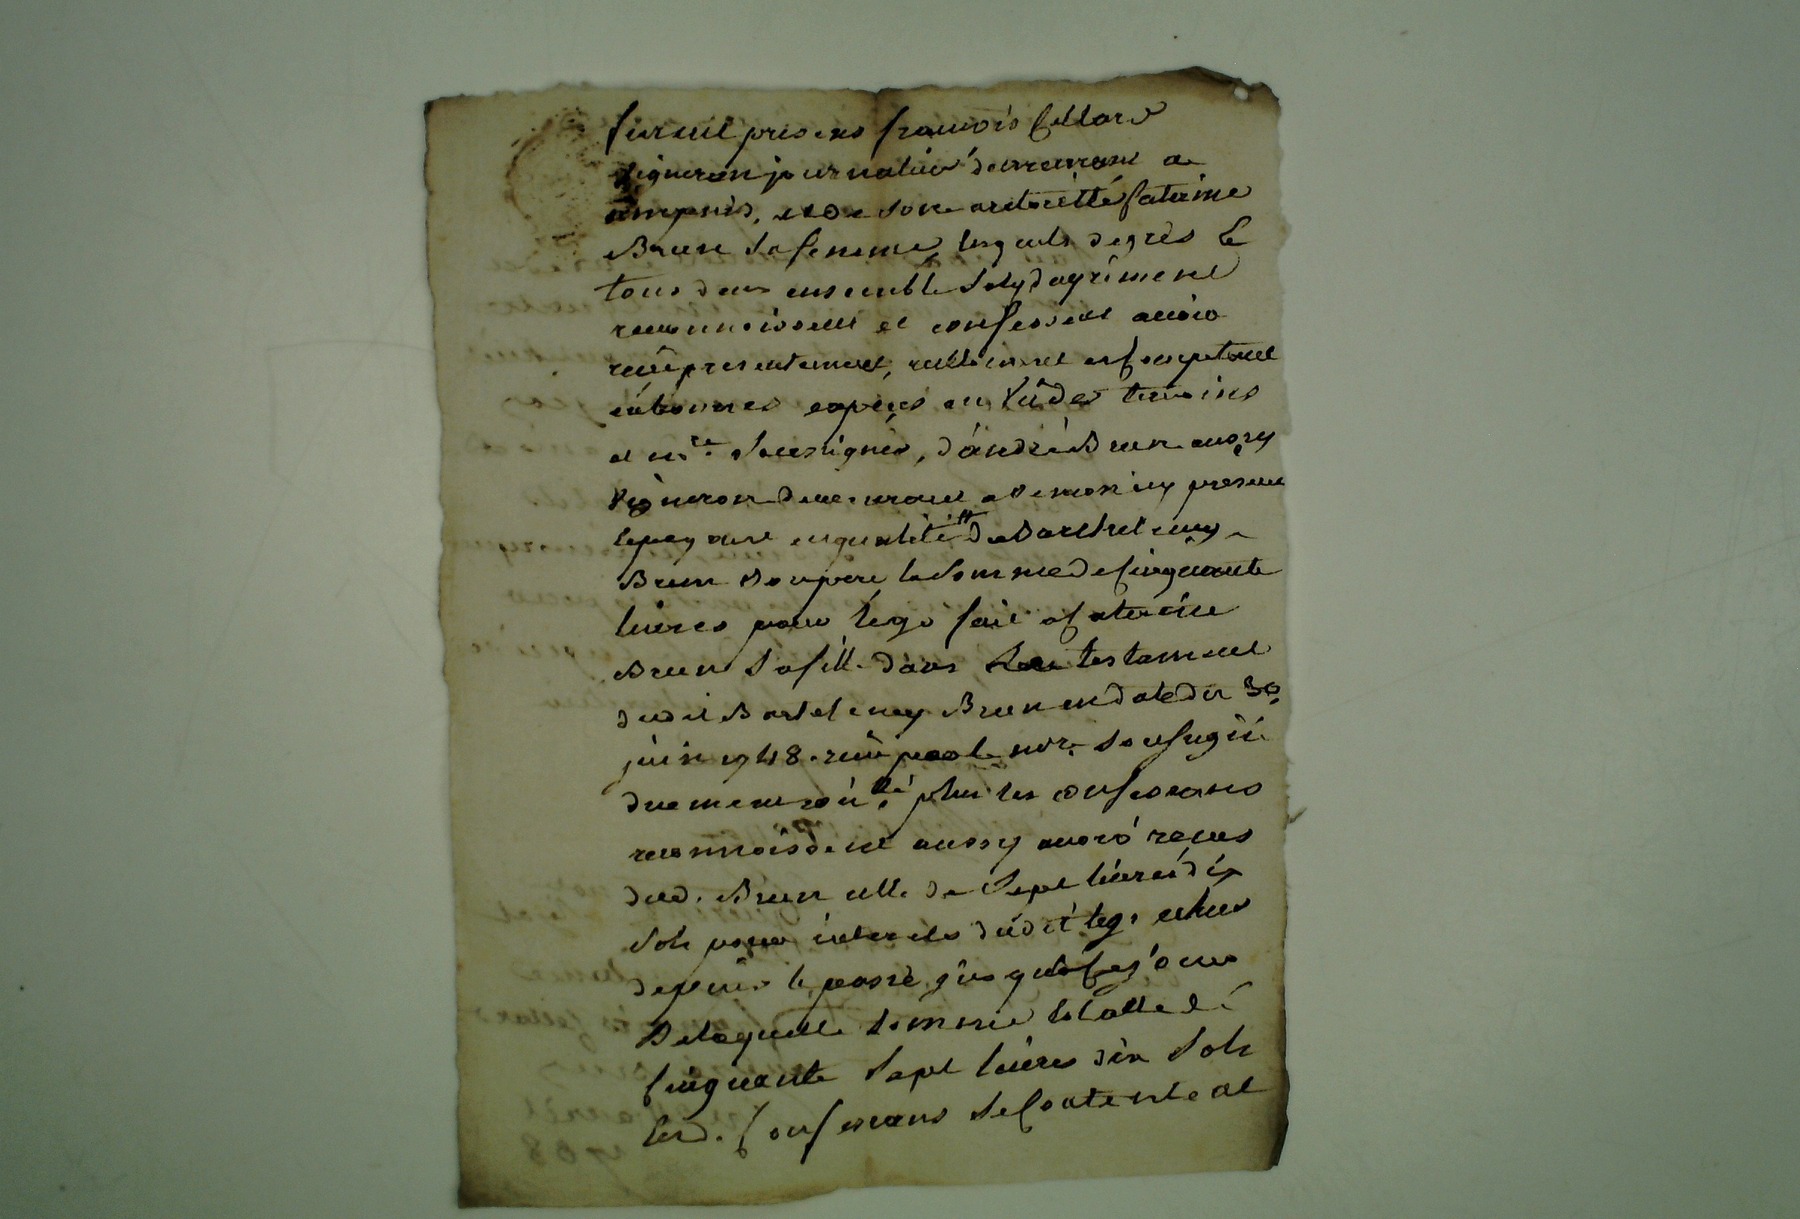 furent presens francois Cellard
vigneron journalier demeurant a
ampuis, et de son autoritté Caterine
Brun sa femme, lesquels degrès et
tous deux ensemble solydayrement
reconnoissent et confessent avoir
reçu presentement, reellement et comptant
en bonnes espèces en Vû des temoins
et nre. soussignés, d'andré Brun aussy
vigneron demeurant a present
le payant en qualité de Barthelemy
Brun son pere, la somme de Cinquante
livres pour légs fait a Caterine
Brun sa fille dans son testament
dudit Bartelemy Brun en datte du 30
juin 1748. reçu par le nore. soussigné
duement conlé. plus les confessans
reconnoissent aussy avoir reçues
dud. Brun celle de sept livres dix
sols pour interets dudit leg. echus
depuis le passé jusqu'a ce jour
De laquelle somme totalle de
Cinquante sept livres dix sols
lesd. Confessans se Contentent